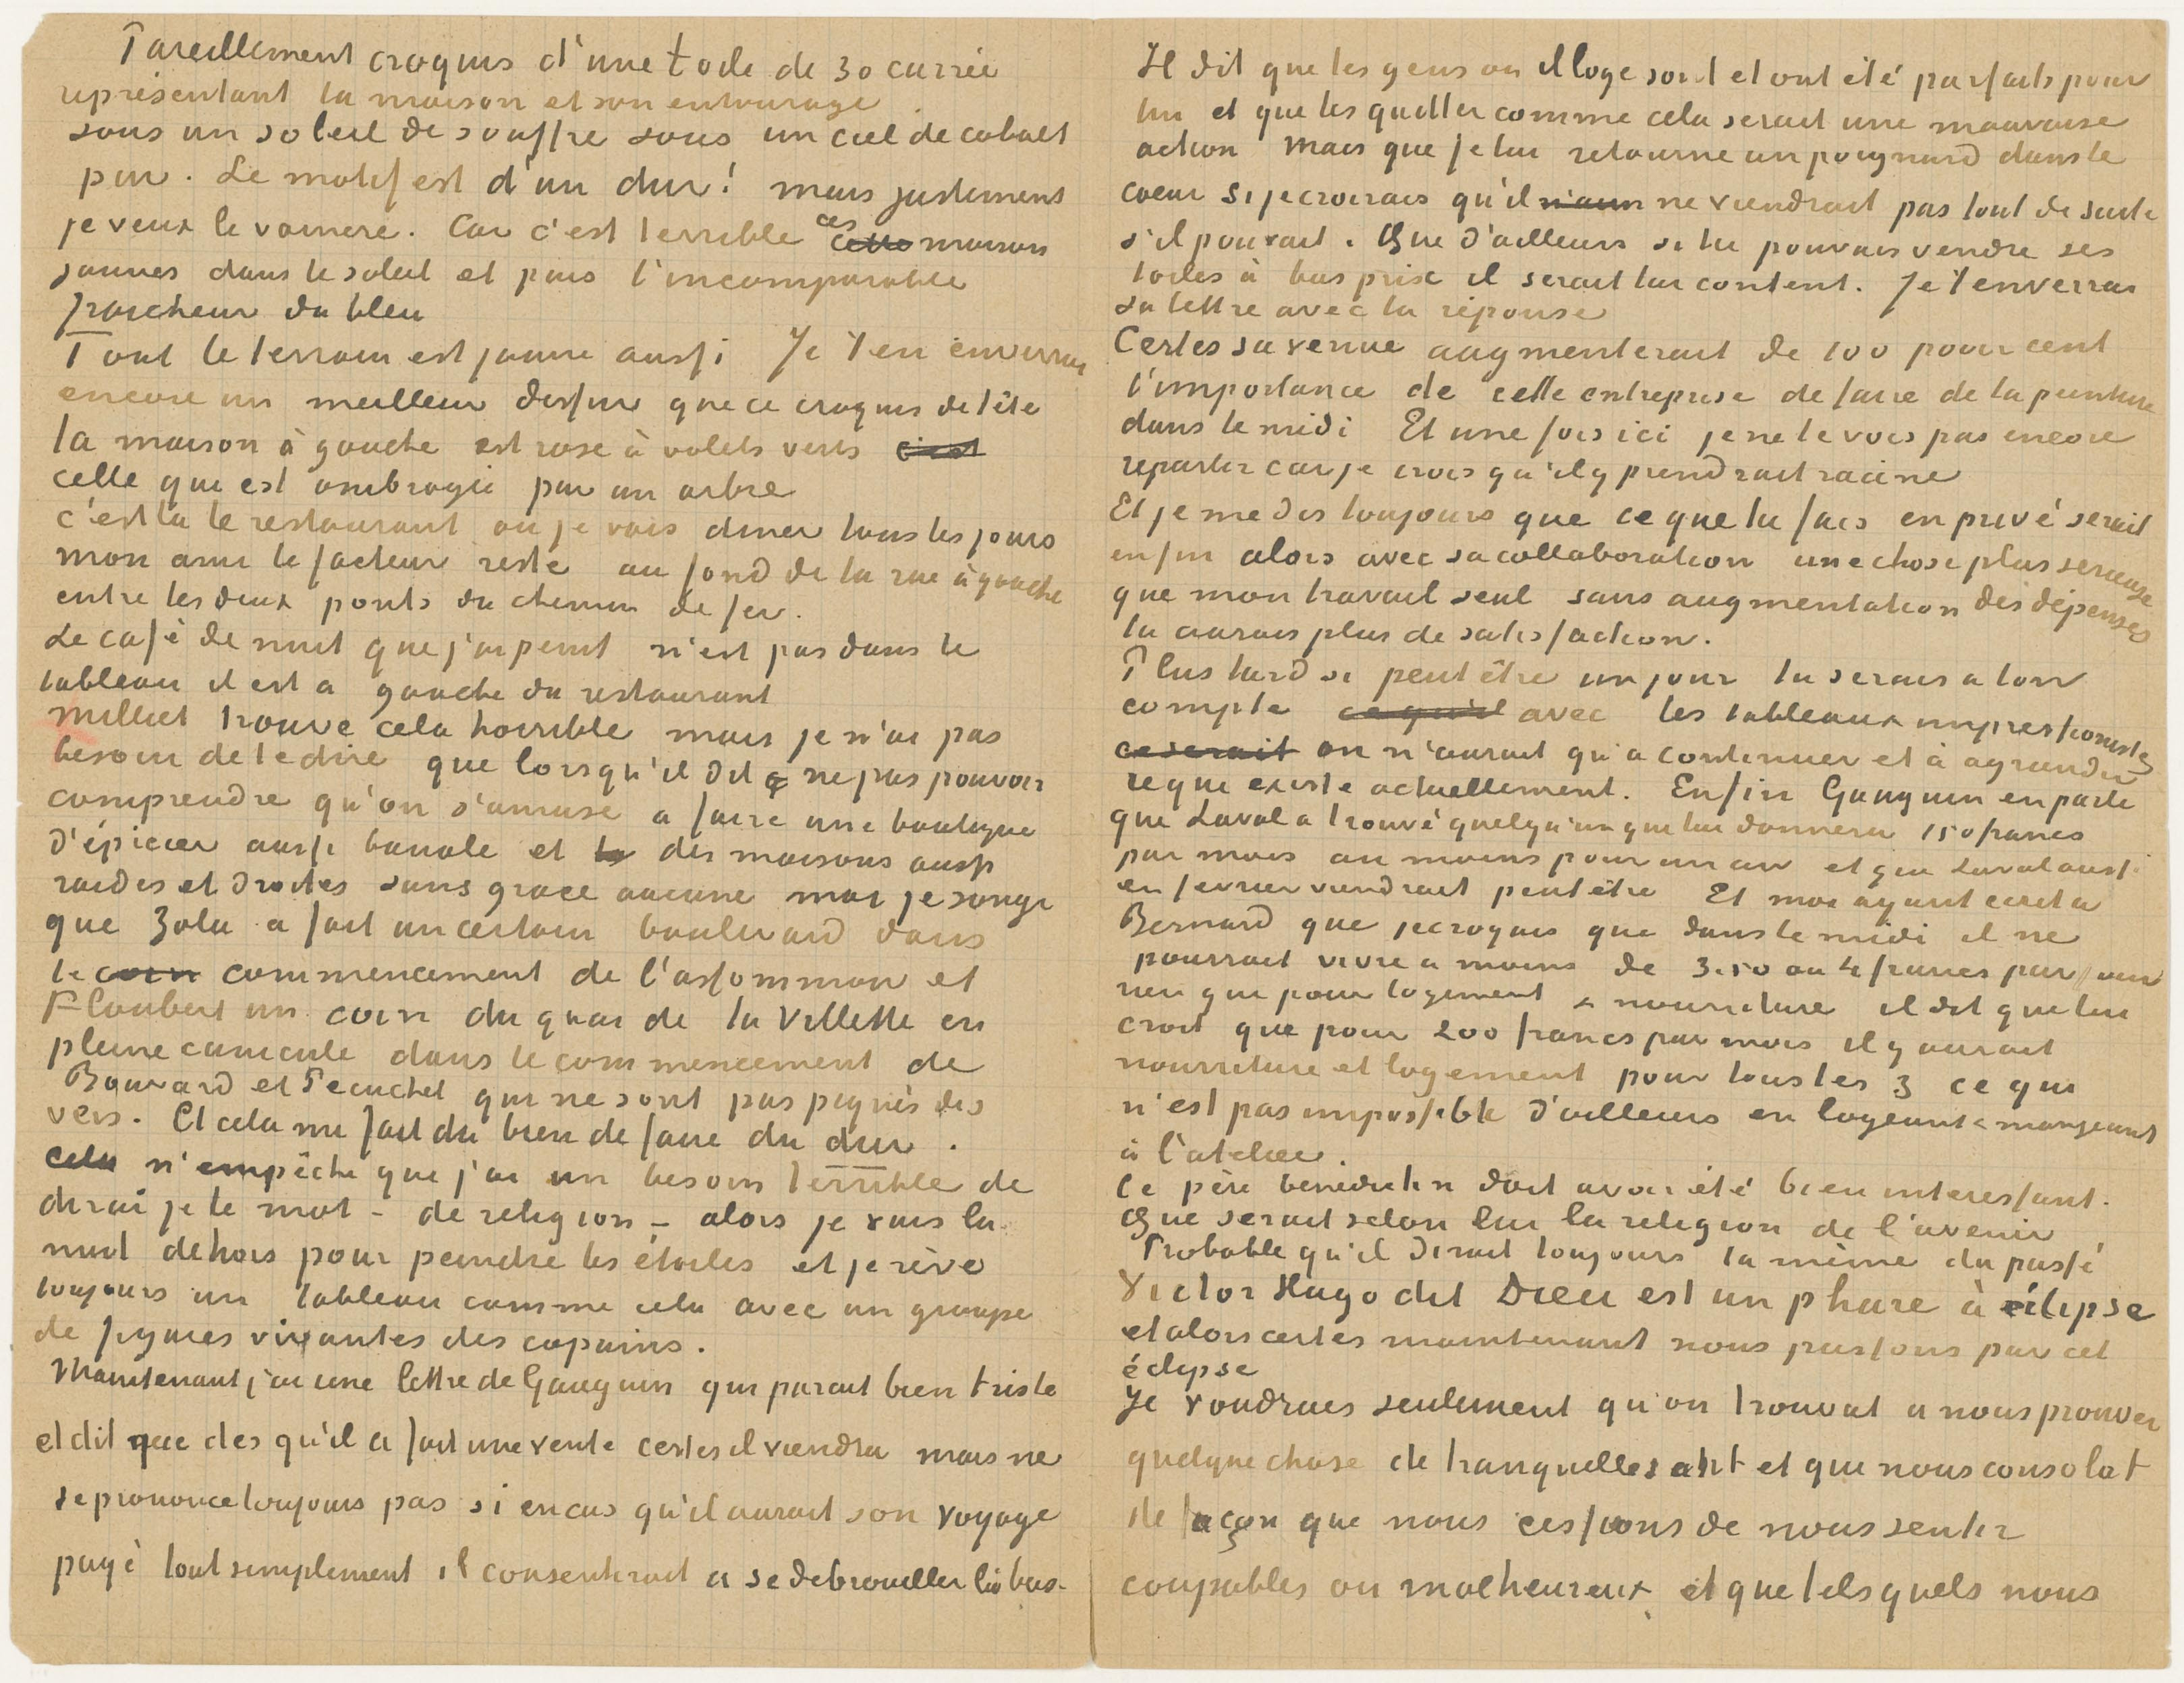 Pareillement croquis d'une toile de 30 carrée
représentant la maison et son entourage
sous un soleil de souffre sous un ciel de cobalt
pur. Le motif est d'un dur! mais justement
je veux le vaincre. Car c'est terrible ces cette maisons
jaunes dans le soleil et puis l'incomparable
fraicheur du bleu
Tout le terrain est jaune aussi Je t'en enverrai
encore un meilleur dessin que ce croquis de tête
la maison à gauche est rose à volets verts c'est
celle qui est ombragée par un arbre
c'est la le restaurant ou je vais diner tous les jours
mon ami le facteur reste au fond de la rue à gauche
entre les deux ponts du chemin de fer.
Le café de nuit que j'ai peint n'est pas dans le
tableau il est a gauche du restaurant
Milliet trouve cela horrible mais je n'ai pas
besoin de te dire que lorsqu'il dit q ne pas pouvoir
comprendre qu'on s'amuse a faire une boutique
d'épicier aussi banale et la des maisons aussi
raides et droites sans grace aucune moi je songe
que Zola a fait un certain boulevard dans
le coin commencement de l'assommoir et
Flaubert un coin du quai de la Villette en
pleine canicule dans le commencement de
Bouvard et Pecuchet qui ne sont pas piqués des
vers. Et cela me fait du bien de faire du dur.
cela n'empêche que j'ai un besoin terrible de
dirai je le mot – de religion – alors je vais la
nuit dehors pour peindre les étoiles et je rève
toujours un tableau comme cela avec un groupe
de figures vivantes des copains.
Maintenant j'ai une lettre de Gauguin qui parait bien triste
et dit que des qu'il a fait une vente certes il viendra mais ne
se prononce toujours pas si en cas qu'il aurait son voyage
payé tout simplement il consentirait a se debrouiller là bas.
Il dit que les gens ou il loge sont et ont été parfaits pour
lui et que les quitter comme cela serait une mauvaise
action Mais que je lui retourne un poignard dans le
coeur si je croirais qu'il n'aim ne viendrait pas tout de suite
s'il pouvait. Que d'ailleurs si tu pouvais vendre ses
toiles à bas prix il serait lui content. Je t'enverrai
sa lettre avec la réponse
Certes sa venue augmenterait de 100 pour cent
l'importance de cette entreprise de faire de la peinture
dans le midi Et une fois ici je ne le vois pas encore
repartir car je crois qu'il y prendrait racine
Et je me dis toujours que ce que tu fais en privé serait
enfin alors avec sa collaboration une chose plus serieuse
que mon travail seul sans augmentation des dépenses
tu aurais plus de satisfaction.
Plus tard si peut être un jour tu serais a ton
compte ce qu'il avec les tableaux impressionistes
ce serait on n'aurait qu'a continuer et à agrandir
ce qui existe actuellement. Enfin Gauguin en parle
que Laval a trouvé quelqu'un qui lui donnera 150 francs
par mois au moins pour un an et que Laval aussi
en fevrier viendrait peut être Et moi ayant ecrit a
Bernard que je croyais que dans le midi il ne
pourrait vivre a moins de 3.50 ou 4 francs par jour
rien que pour logement & nourriture il dit que lui
croit que pour 200 francs par mois il y aurait
nourriture et logement pour tous les 3 ce qui
n'est pas impossible d'ailleurs en logeant & mangeant
à l'atelier.
Ce père benedictin doit avoir été bien interessant.
Que serait selon lui la religion de l'avenir
Probable qu'il dirait toujours la même du passé
Victor Hugo dit Dieu est un phare à eclipse
et alors certes maintenant nous passons par cet
éclipse
Je voudrais seulement qu'on trouvat a nous prouver
quelque chose de tranquillesant et qui nous consolat
de façon que nous cessions de nous sentir
coupables ou malheureux et que tels quels nous